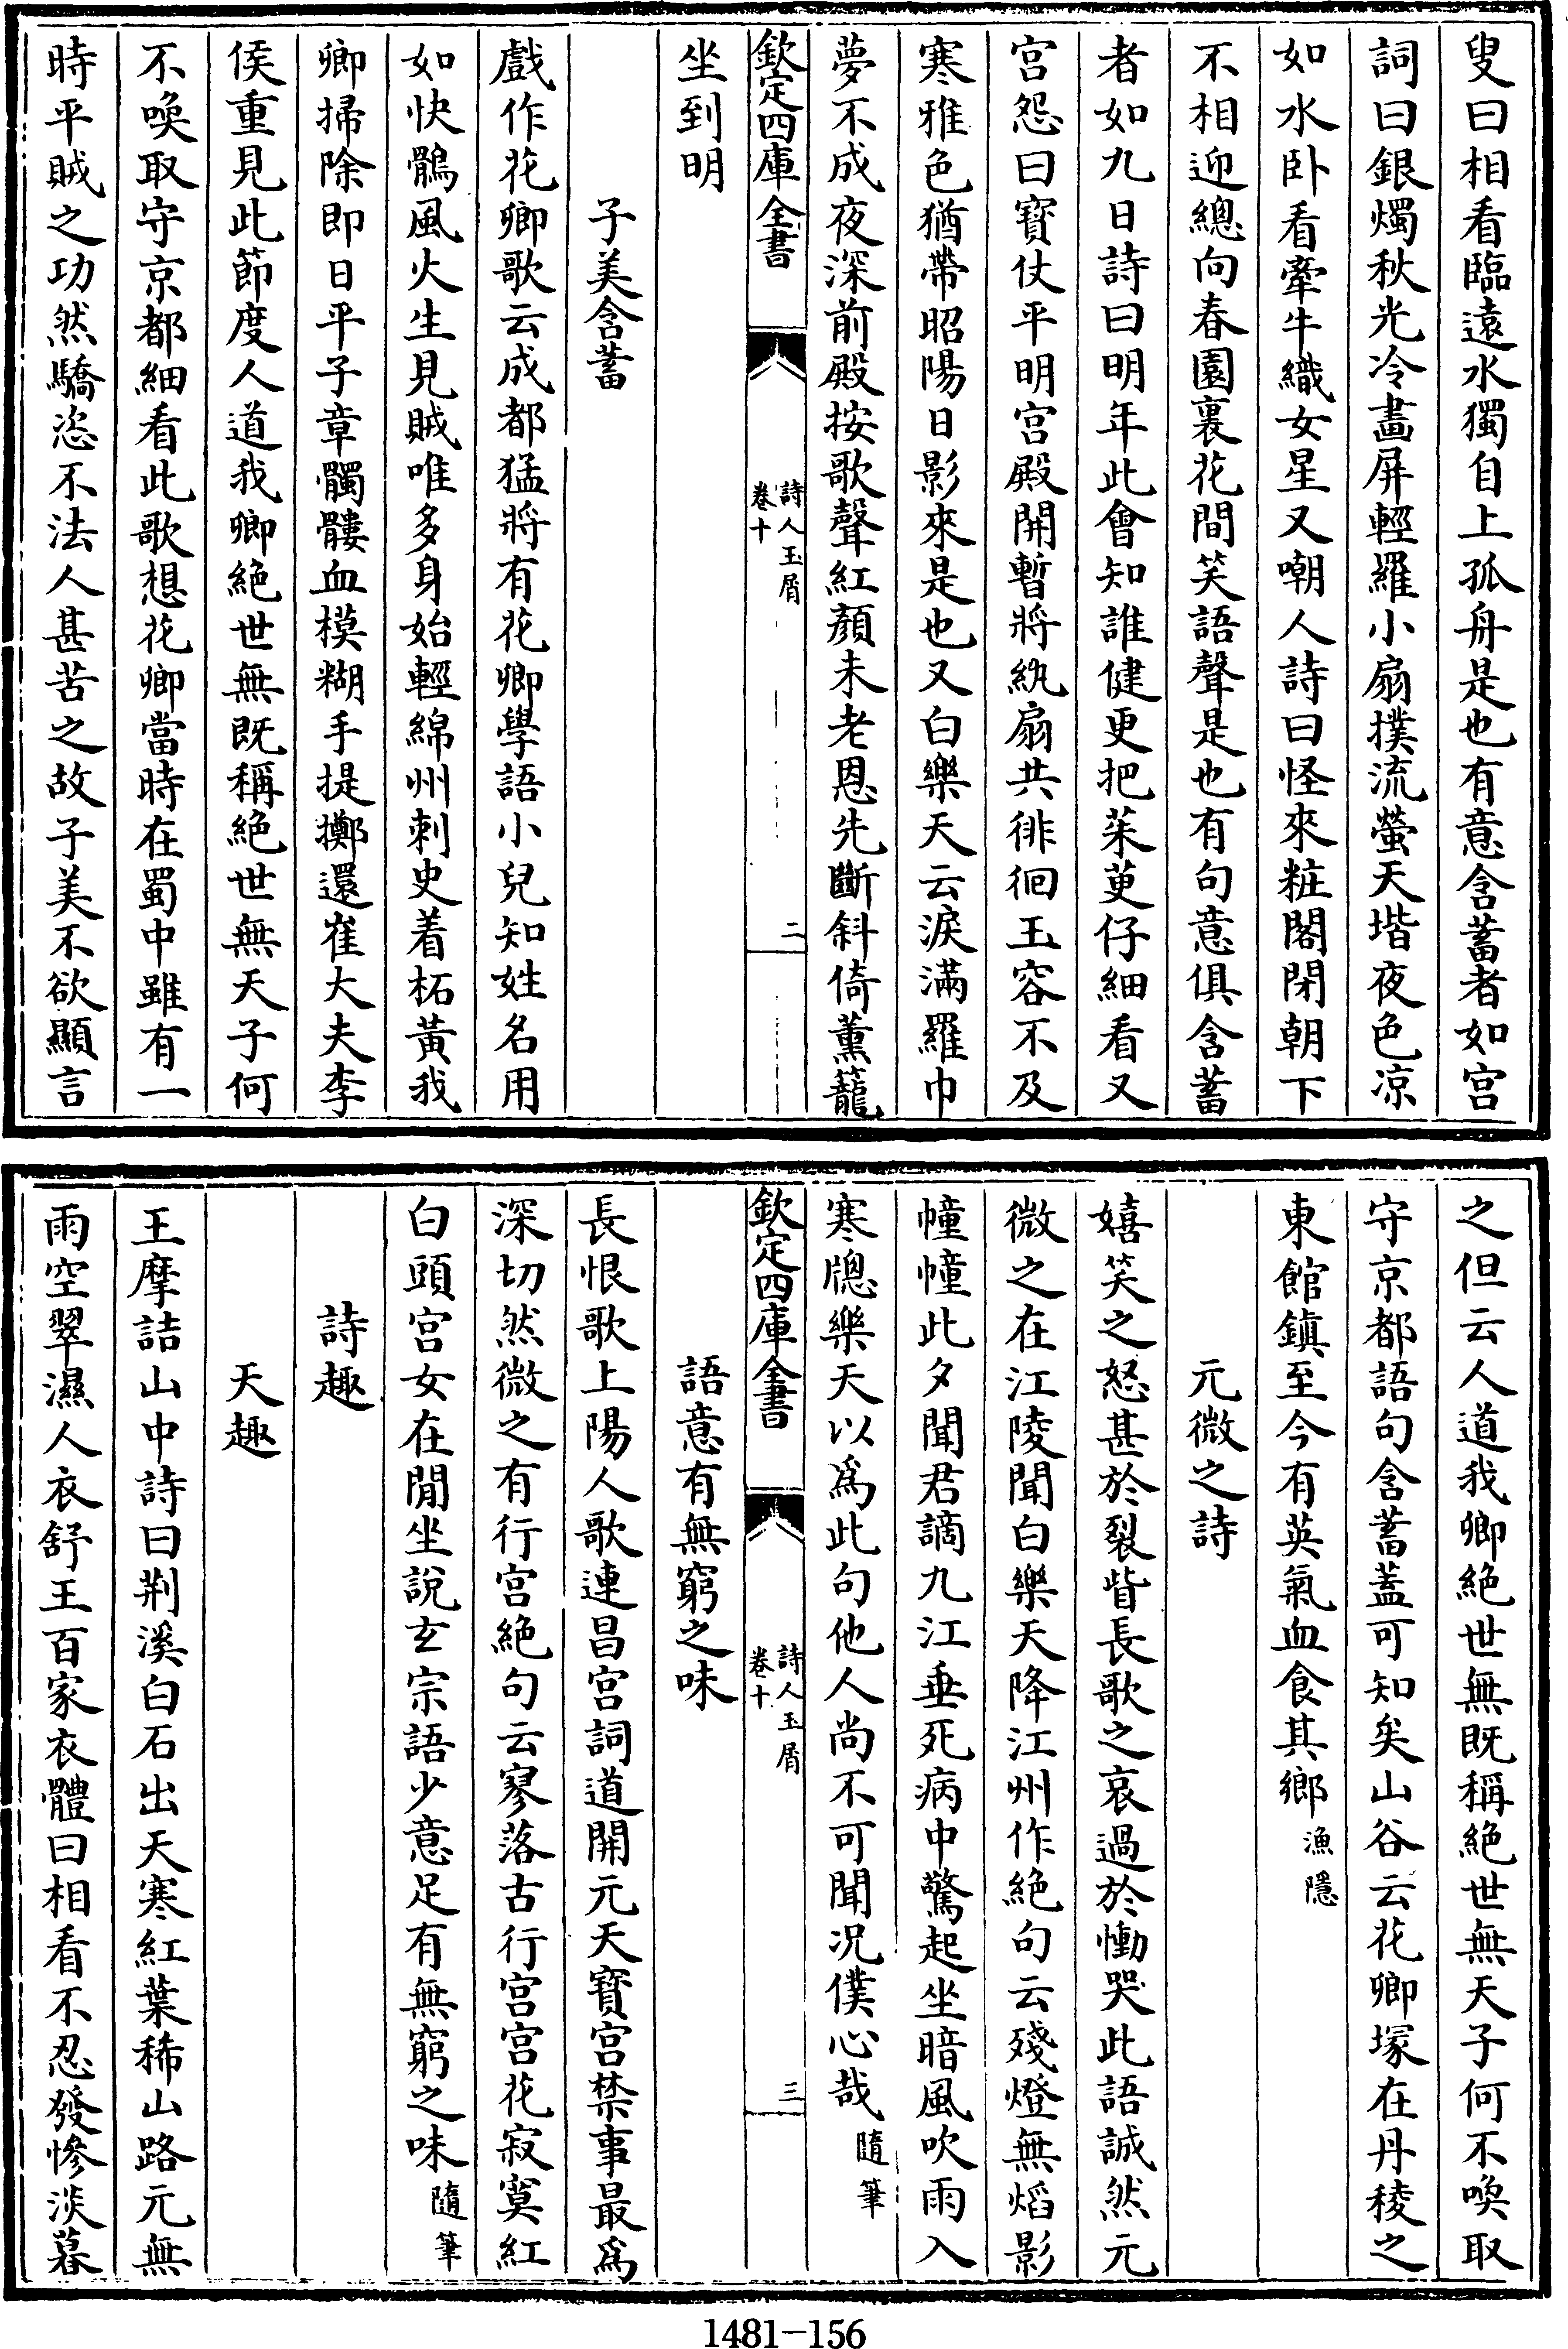 叟曰相看臨遠水獨自上孤舟是也有意含蓄者如宫
詞曰銀燭秋光冷畫屏輕羅小扇撲流螢天堦夜色凉
如水卧看牽牛織女星又嘲人詩曰怪來粧閣閉朝下
不相迎總向春園裏花間笑語聲是也有句意俱含蓄
者如九日詩曰明年此會知誰健更把茱萸仔細看又
宫怨曰寳仗平明宫殿開暫將紈扇共徘徊玉容不及
寒雅色猶帶昭陽日影來是也又白樂天云淚滿羅巾
夢不成夜深前殿按歌聲紅顏未老恩先斷斜倚薰籠
欽定四庫全書
詩人玉屑
卷十
二
坐到明
子美含蓄
戲作花卿歌云成都猛將有花卿學語小兒知姓名用
如快鶻風火生見賊唯多身始輕綿州刺史着柘黃我
卿掃除即日平子章髑髏血模糊手提擲還崔大夫李
侯重見此節度人道我卿絶世無既稱絶世無天子何
不喚取守京都細看此歌想花卿當時在蜀中雖有一
時平賊之功然驕恣不法人甚苦之故子美不欲顯言
之但云人道我卿絶世無既稱絶世無天子何不喚取
守京都語句含蓄蓋可知矣山谷云花卿塚在丹稜之
東館鎮至今有英氣血食其鄉漁隱
元微之詩
嬉笑之怒甚於裂眥長歌之哀過於慟哭此語誠然元
微之在江陵聞白樂天降江州作絶句云殘燈無熖影
幢幢此夕聞君謫九江垂死病中驚起坐暗風吹雨入
寒牕樂天以爲此句他人尚不可聞况僕心哉隨筆
欽定四庫全書
詩人玉屑
卷十
三
語意有無窮之味
長恨歌上陽人歌連昌宫詞道開元天寳宫禁事最爲
深切然微之有行宫絶句云寥落古行宫宫花寂寞紅
白頭宫女在閒坐說玄宗語少意足有無窮之味隨筆
詩趣
天趣
王摩詰山中詩曰荆溪白石出天寒紅葉稀山路元無
雨空翠濕人衣舒王百家衣體曰相看不忍發慘淡暮
1481-156